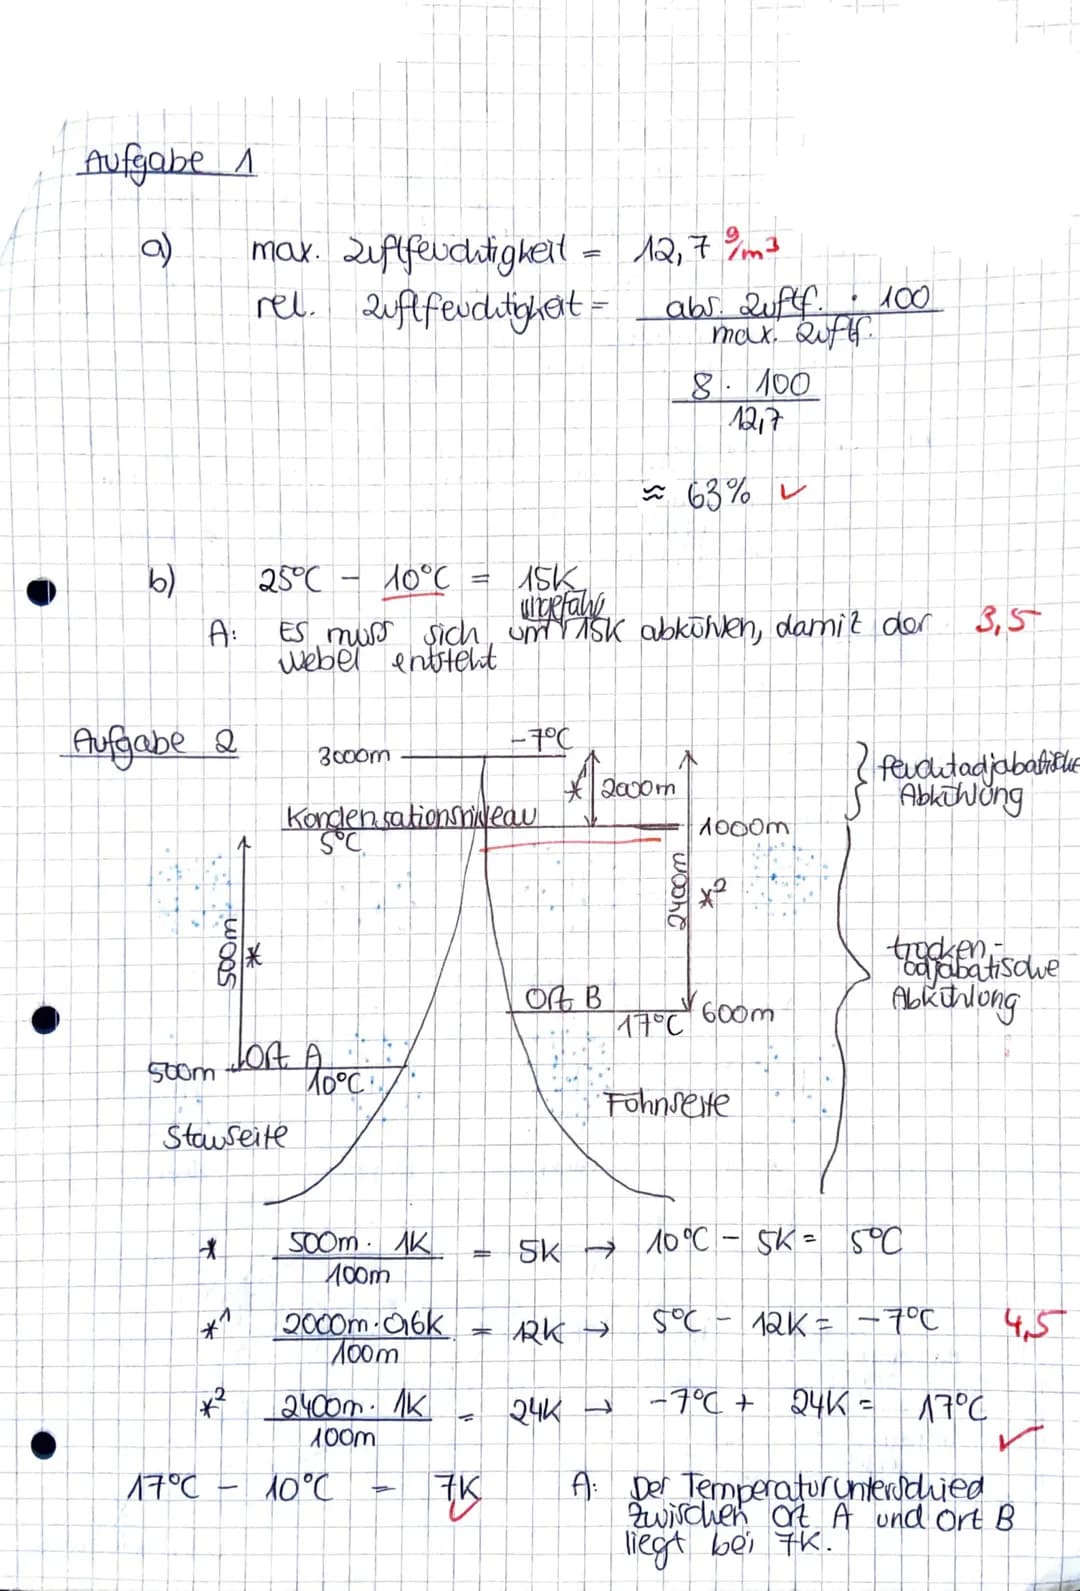 Aufgabe 1
a) max. Luftfeuchtigkeit = 12,7 g/m³
rel. Luftfeuchtigkeit = abs. Luftf. · 100
max. Luftf.
8 · 100
12,7
≈ 63% ✓
b) 25°C - 10°C = 15K
ungefähr
A: Es muss sich um 15K abkühlen, damit der 3,5
Nebel entsteht
Aufgabe 2
-7°C
3000m
* 2000m
feuchtadjabatische
Abkühlung
Kondensationsniveau
5°C
1000m
500m
*
2400m
*²
trocken-
adjabatische
Abkühlung
Ort B
17°C 600m
500m Ort A
10°C
Föhnseite
Stauseite
* 500m · 1K = 5K → 10°C - 5K = 5°C
100m
*¹ 2000m · 0,6K = 12K → 5°C - 12K = -7°C 4,5
100m
*² 2400m · 1K = 24K → -7°C + 24K = 17°C ✓
100m
17°C - 10°C = 7K ✓
A: Der Temperaturunterschied
zwischen Ort A und Ort B
liegt bei 7K.